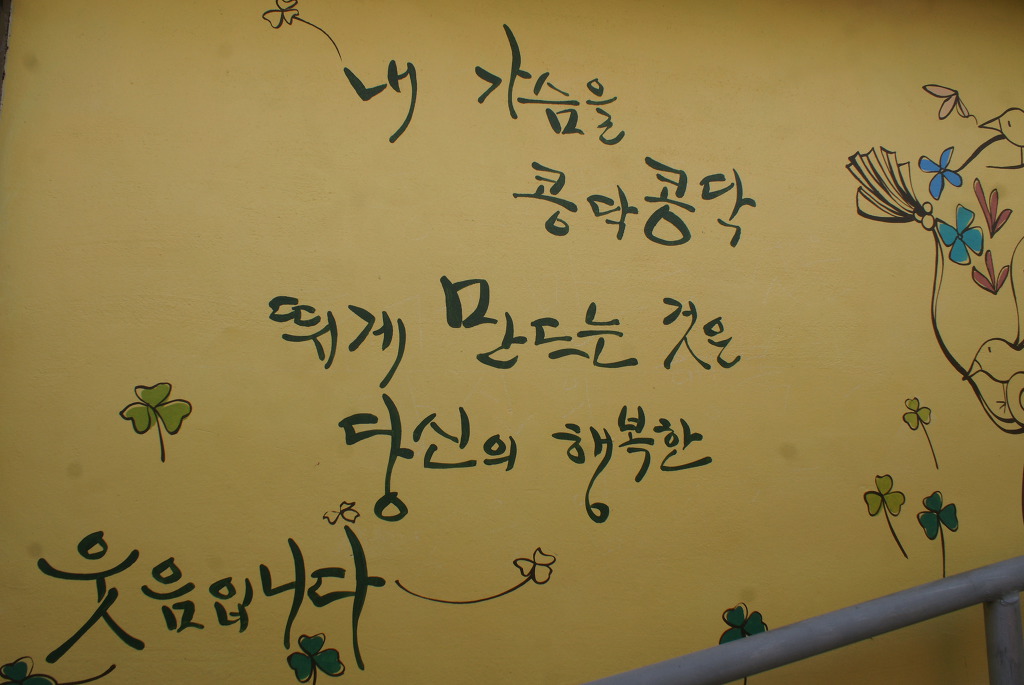 내 가슴을
콩닥콩닥
뛰게 만드는 것은
당신의 행복한
웃음입니다